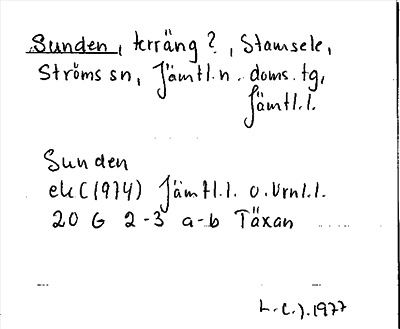 Sunden, terräng?, Stamsele,
Ströms sn, Jämtl. n. doms. tg,
Jämtl. l.
Sunden
ek (1974) Jämtl. l. o. Vrnl. l.
20 G 2-3 a-b Täxan
L. C. J. 1977